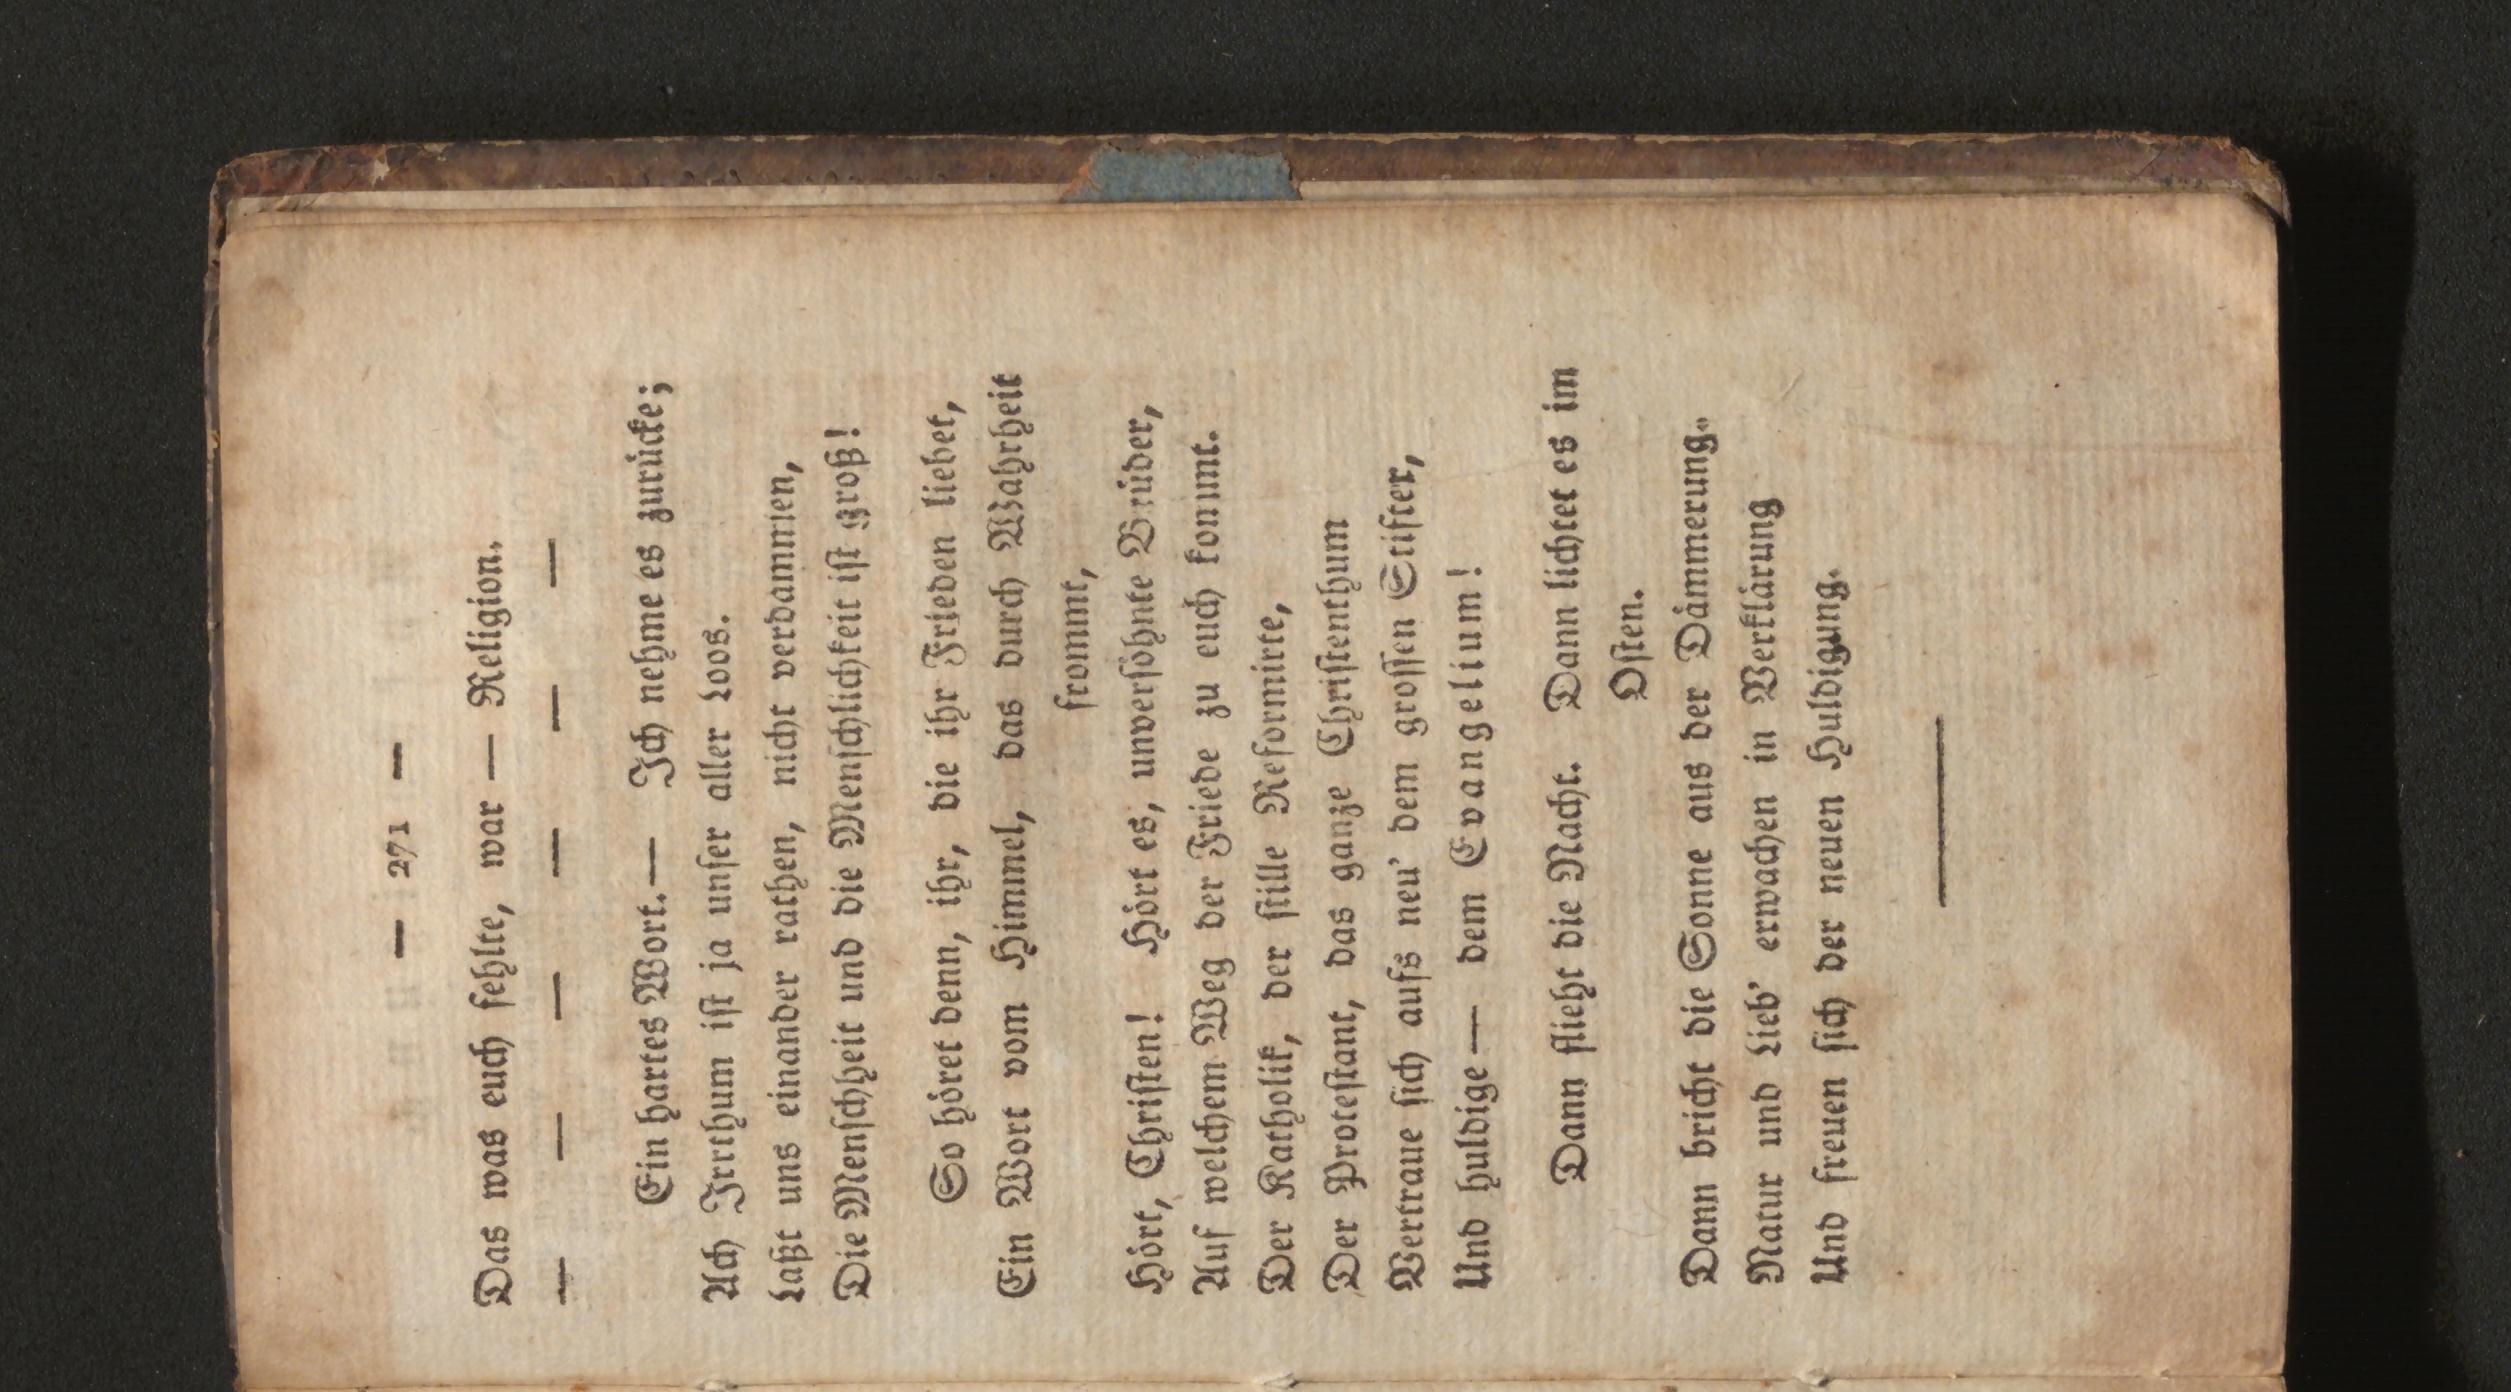 — 271 —
Das was euch fehlte, war — Religion.
— — — — — —
Ein hartes Wort. — Ich nehme es zurücke;
Ach Irrthum ist ja unser aller Loos.
Laßt uns einander rathen, nicht verdammen,
Die Menschheit und die Menschlichkeit ist groß!
So höret denn, ihr, die ihr Frieden liebet,
Ein Wort vom Himmel, das durch Wahrheit
frommt,
Hört, Christen! Hört es, unversöhnte Brüder,
Auf welchem Weg der Friede zu euch kommt.
Der Katholik, der stille Reformirte,
Der Protestant, das ganze Christenthum
Vertraue sich aufs neu' dem grossen Stifter,
Und huldige — dem Evangelium!
Dann flieht die Nacht. Dann lichtet es im
Osten.
Dann bricht die Sonne aus der Dämmerung.
Natur und Lieb' erwachen in Verklärung
Und freuen sich der neuen Huldigung.